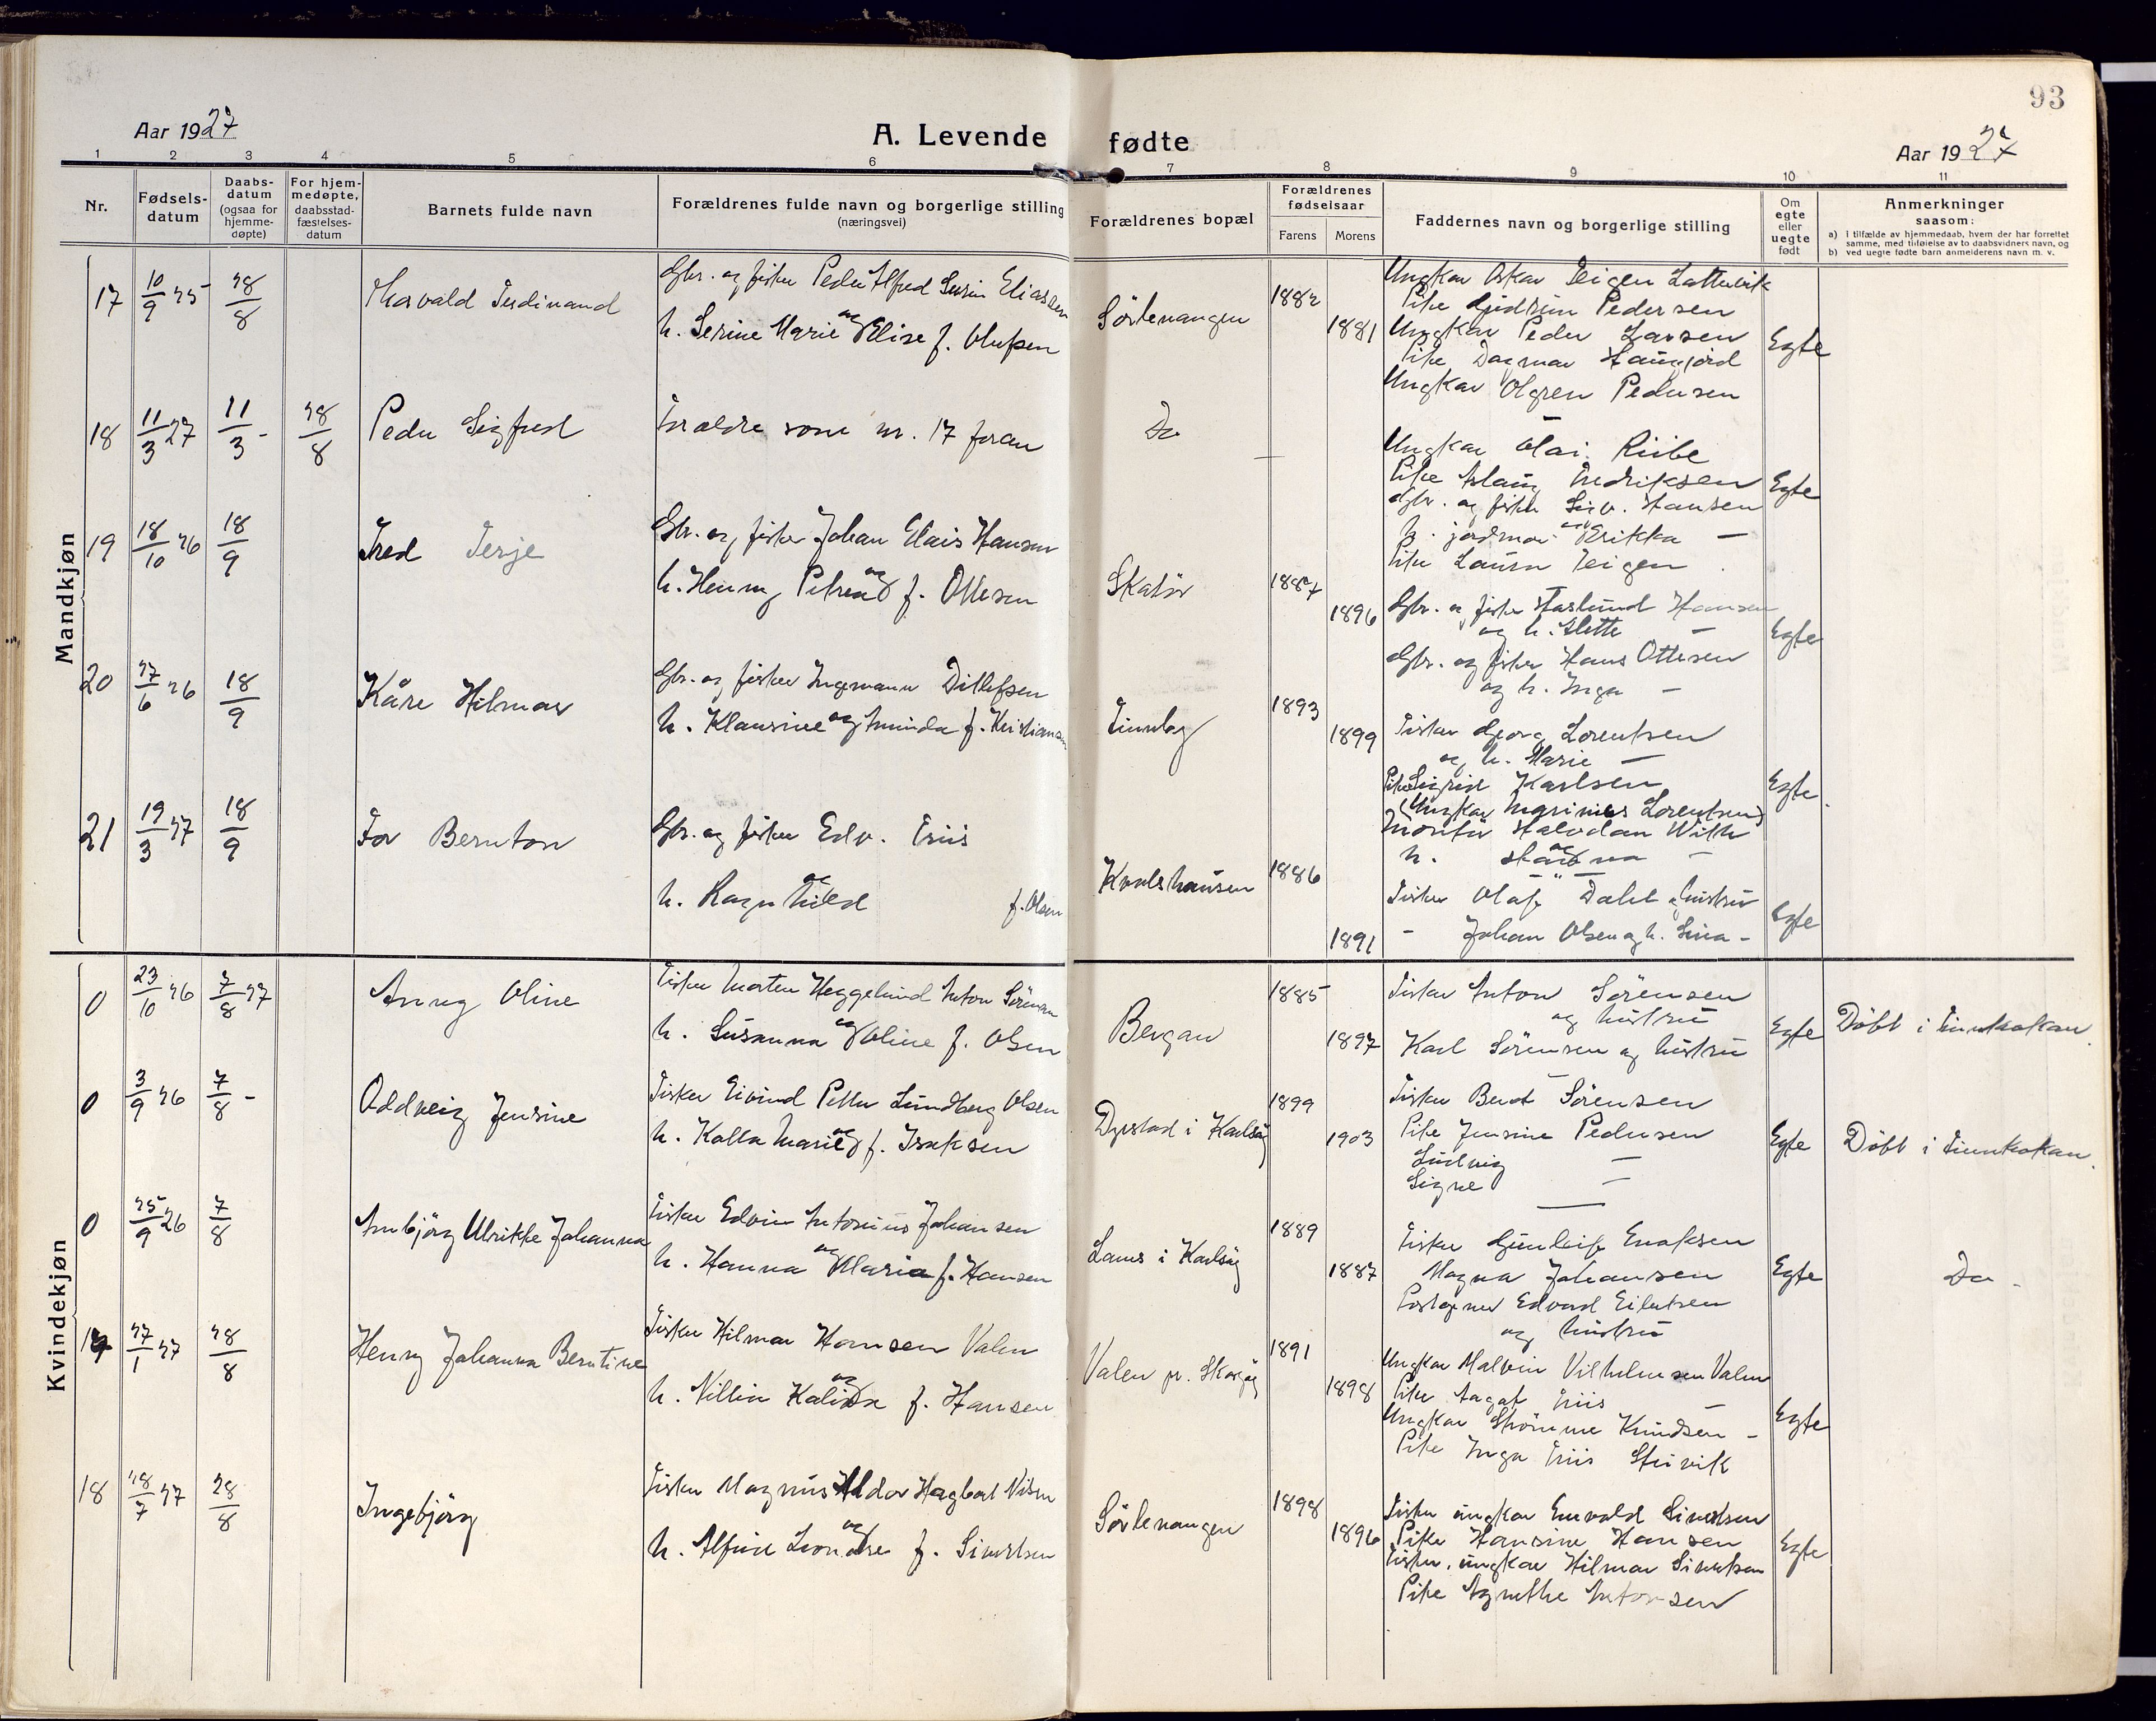 93
Aar 1927
A. Levende fødte
Aar 1927
1 2 3 4 5 6 7 8 9 10 11
Nr.
Fødsels-
datum
Daabs-
datum
(ogsaa for
hjemme-
døpte)
For hjem-
medøpte,
daabsstad-
fæstelses-
datum
Barnets fulde navn
Forældrenes fulde navn og borgerlige stilling
(næringsvei)
Forældrenes bopæl
Forældrenes
fødselsaar
Farens Morens
Faddernes navn og borgerlige stilling
Om
egte
eller
uegte
født
Anmerkninger
saasom:
a) i tilfælde av hjemmedaab, hvem der har forrettet
samme, med tilføielse av to daabsvidners navn, og
b) ved uegte fødte barn anmelderens navn m. v.
Mandkjøn
17 10/9 25 28/8
Thorvald Ferdinand
Gbr. og fisker Peder Alfred Severin Eliassen
og
h. Serine Marie Elise f. Olufsen
Sørlenangen
1882
1881
Ungkar Oskar Teigen Lattervik
Pike Gudrun Pedersen
Ungkar Peder Larsen
Pike Dagmar Haugfjord
Ungkar Olgren Pedersen
Egte
18 11/3 27 11/3 - 28/8
Peder Sigfred
Forældre som nr. 17 foran
Do
—
Ungkar Olai Riibe
Pike Aslaug Fredriksen
Gbr. og fisker Siv. Hansen
og
h. jordmor Erikka —
Pike Laura Teigen
Egte
19 18/10 26 18/9
Fred Terje
Gbr. og fisker Johan Elais Hansen
og
h. Henny Petrea f. Ottesen
Skatør
1887
1896
Gbr. og fisker Haslund Hansen
og h. Alette —
Gbr. og fisker Hans Ottesen
og h. Inga —
Egte
20 27/6 26 18/9
Kåre Hilmar
Gbr. og fisker Ingemann Ditlefsen
og
h. Klausine Aminda f. Kristiansen
1893
1899
Fisker Georg Lorentsen
og h. Marie —
Pike Sigrid Karlsen
(Ungkar Marinius Lorentsen)
Egte
21 19/3 27 18/9
Tor Bernton
Gbr. og fisker Edv. Friis
og
h. Ragnhild f. Olsen
Kvalshausen
1886
1891
Montør Halvdan With
og
h. Haugna —
Fisker Olaf Dahl og hustru
- Johan Olsen og h. Lina -
Egte
Kvindekjøn
0 23/10 26 7/8 27
Anny Oline
Fisker Morten Heggelund Anton Sørensen
og
h. Susanna Oline f. Olsen
Bergan
1885
1897
Fisker Anton Sørensen
og hustru
Karl Sørensen og hustru
Egte
Døbt i Finnkroken.
0 3/9 26 7/8 -
Oddveig Jensine
Fisker Eivind Petter Lundberg Olsen
og
h. Kalla Marie f. Isaksen
Dyrstad i Karlsøy
1899
1903
Fisker Berot Sørensen
Pike Jensine Pedersen
Ludvig —
Signe —
Egte
Døbt i Finnkroken.
0 25/9 26 7/8
Arnbjørg Ulrikke Johanna
Fisker Edvin Antonius Johansen
og
h. Hanna Maria f. Hansen
Lanes i Karlsøy
1889
1887
Fisker Gunleif Enoksen
Magna Johansen
Postaapner Edvard Eilertsen
og hustru
Egte
Do -
17 27/1 27 28/8
Henny Johanna Berntine
Fisker Hilmar Hansen Valen
og
h. Nillia Kalida f. Hansen
Valen pr. Skarsfj
1891
1898
Ungkar Malvin Vilhelmsen Valen
Pike Aagot Friis —
Ungkar Strømme Knudsen -
Pike Inga Friis Storvik
Egte
18 28/7 27 28/8
Ingebjørg
Fisker Magnus Aldor Hagbart Nilsen
og
h. Alfine Leondre f. Sivertsen
Sørlenangen
1898
1896
Fisker ungkar Envald Sivertsen
Pike Hansine Hansen
Fisker, ungkar Hilmar Sivertsen
Pike Agnethe Antonsen
Egte